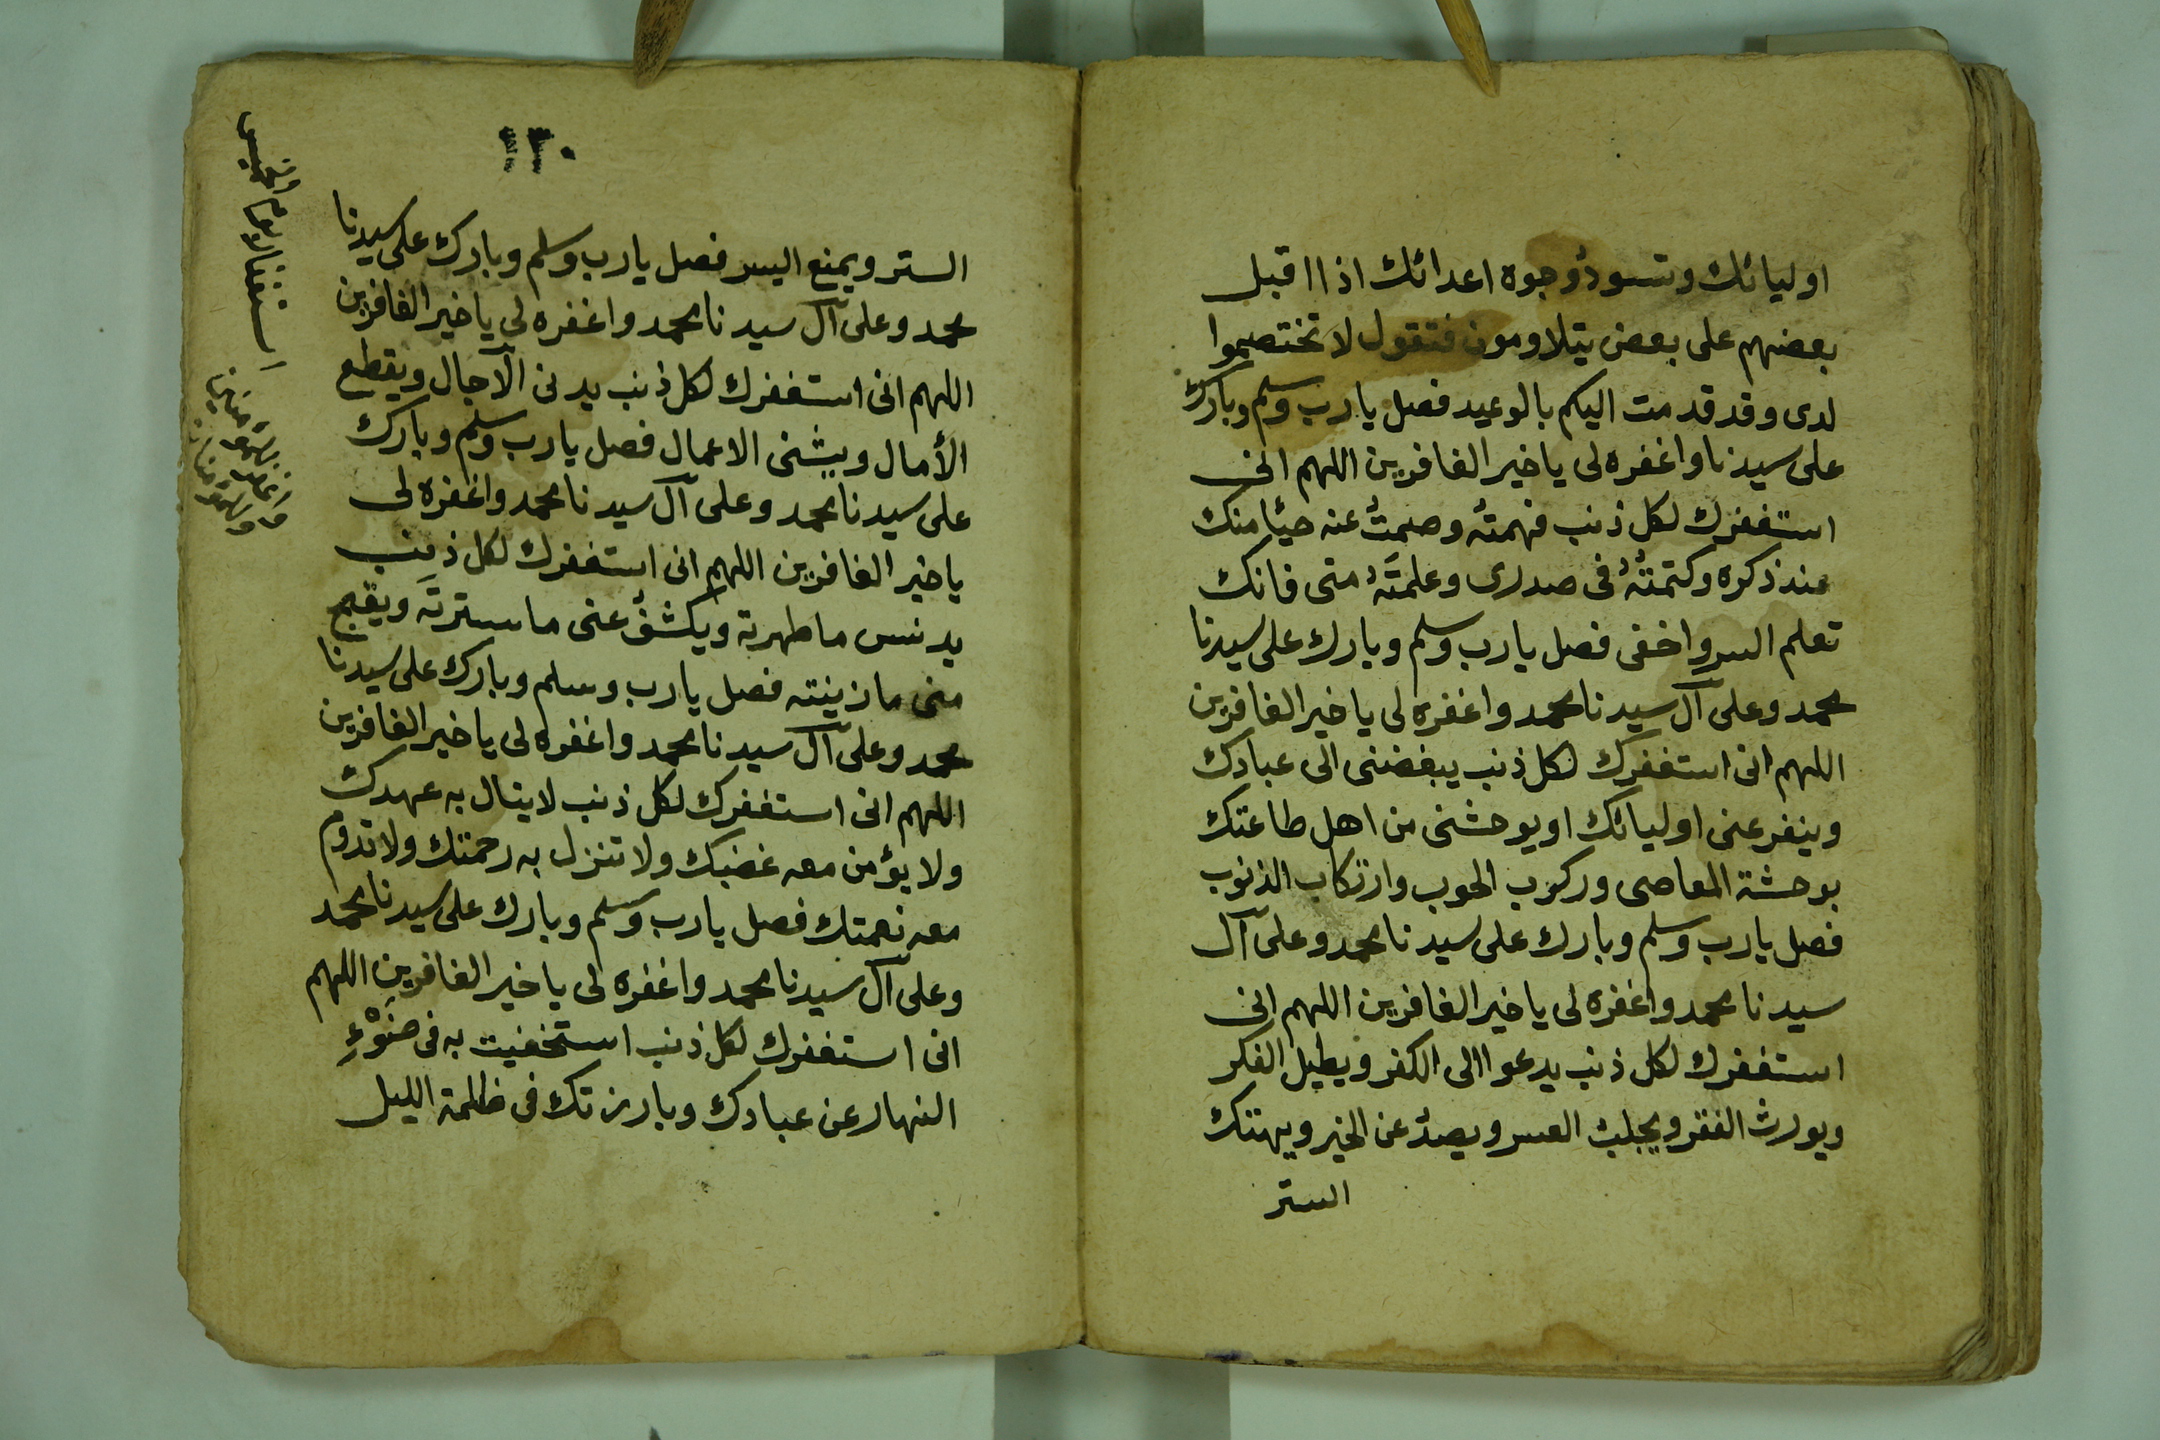 اوليائك وتسودُ وجوه اعدائك اذا اقبل
بعضهم على بعض يتلاومون فتقول لا تختصموا
لدى وقد قدمت اليكم بالوعيد فصل يا رب وسلم وبارك
على سيدنا واغفره لى يا خير الغافرين اللهم انى
استغفرك لكل ذنب فهمتهُ وصمتُ عنه حيأ منك
عند ذكره وكتمتهُ فى صدرى وعلمتَهُ منى فانك
تعلم السر واخفى فصل يا رب وسلم وبارك على سيدنا
محمد وعلى آل سيدنا محمد واغفره لى يا خير الغافرين
اللهم انى استغفرك لكل ذنب يبغضنى الى عبادك
وينفر عنى اوليائك او يوحشنى من اهل طاعتك
بوحشة المعاصى وركوب الحوب وارتكاب الذنوب
فصل يا رب وسلم وبارك على سيدنا محمد وعلى آل
سيدنا محمد واغفره لى يا خير الغافرين اللهم انى
استغفرك لكل ذنب يدعوا الى الكفر ويطيل الفكر
ويورث الفقر ويجلب العسر ويصدُ عن الخير ويهتك
الستر
١٣٠
الستر ويمنع اليسر فصل يا رب وسلم وبارك على سيدنا
محمد وعلى آل سيدنا محمد واغفره لى يا خير الغافرين
اللهم انى استغفرك لكل ذنب يدنى الآجال ويقطع
الأمال ويشنى الاعمال فصل يا رب وسلم وبارك
على سيدنا محمد وعلى آل سيدنا محمد واغفره لى
يا خير الغافرين اللهم انى استغفرك لكل ذنب
يدنس ما طهرته ويكشفُ عنى ما سترتَه ويقبح
منى ما زينته فصل يا رب وسلم وبارك على سيدنا
محمد وعلى آل سيدنا محمد واغفره لى يا خير الغافرين
اللهم انى استغفرك لكل ذنب لا ينال به عهدك
ولا يؤمن معه غضبك ولا تنزل به رحمتك ولا تدوم
معه نعمتك فصل يا رب وسلم وبارك على سيدنا محمد
وعلى آل سيدنا محمد واغفره لى يا خير الغافرين اللهم
انى استغفرك لكل ذنب استخفيت به فى ضَوْءِ
النهار عن عبادك وبارزتك فى ظلمة الليل
استغفار يوم الخميس